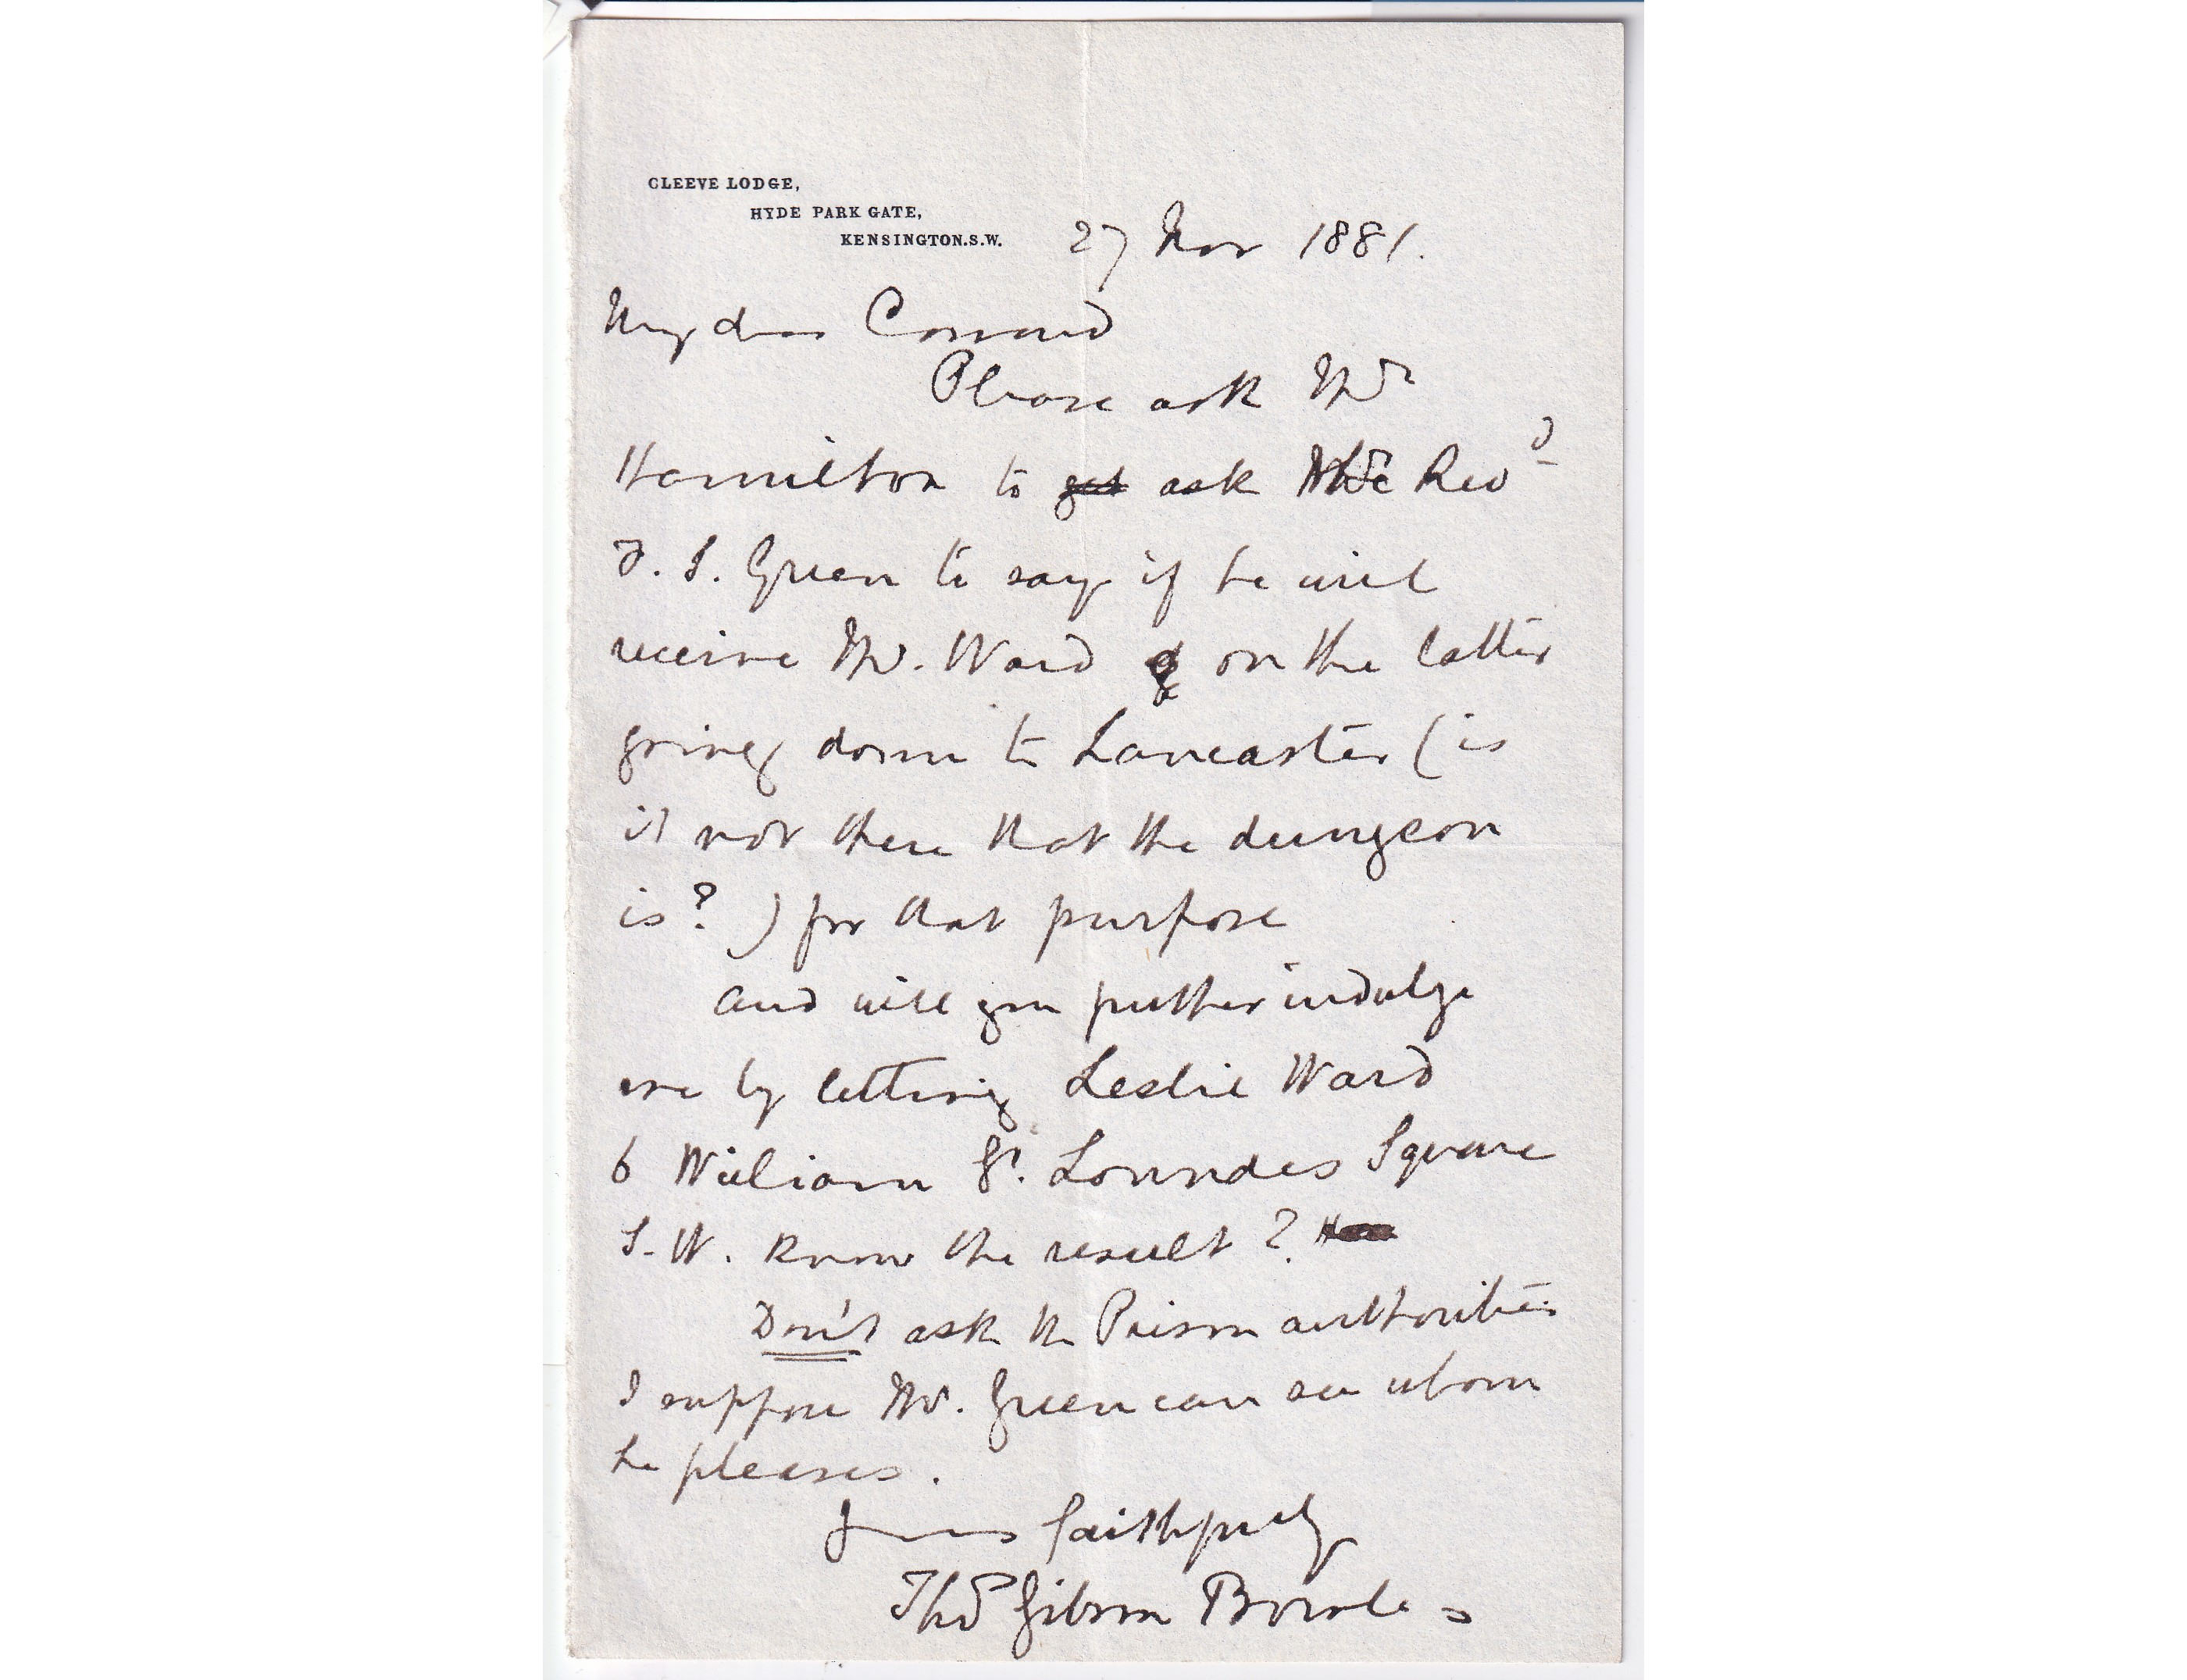 CLEEVE LODGE,
HYDE PARK GATE,
KENSINGTON.S.W.
27 Nov 1881.
My dear
Please ask Mr
Hamilton to get ask the Revd
F. S. Green to say if he will
receive Mr. Ward on the latter
going down to Lancaster (is
it not there that the dungeon
is?) for that purpose
and will you further indulge
me by letting Leslie Ward
6 William St. Lowndes Square
S.W. know the result?
Don't ask the Prison authorities
I suppose Mr. Green can see whom
he pleases.
Yours faithfully
Thos Gibson Bowles